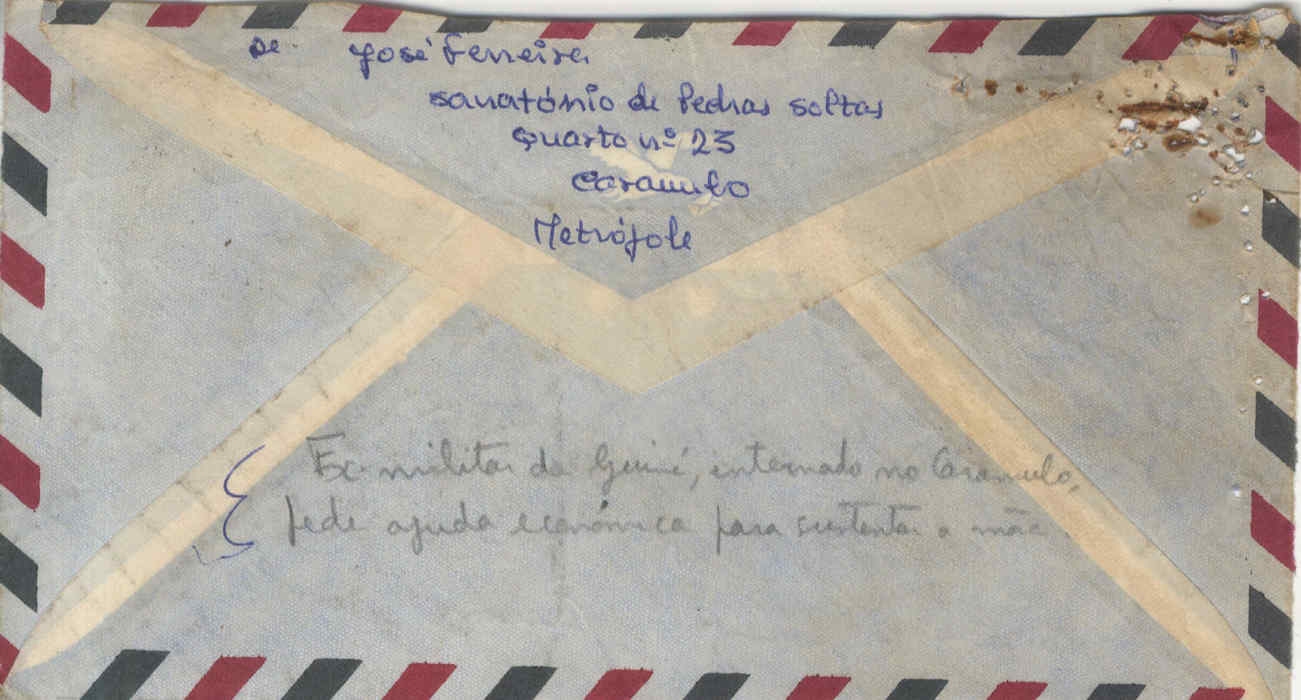 De José Ferreira
sanatório de Pedras soltas
Quarto nº 23
Caramulo
Metrópole
Ex militar da Guiné, internado no Caramulo,
pede ajuda económica para sustentar a mãe